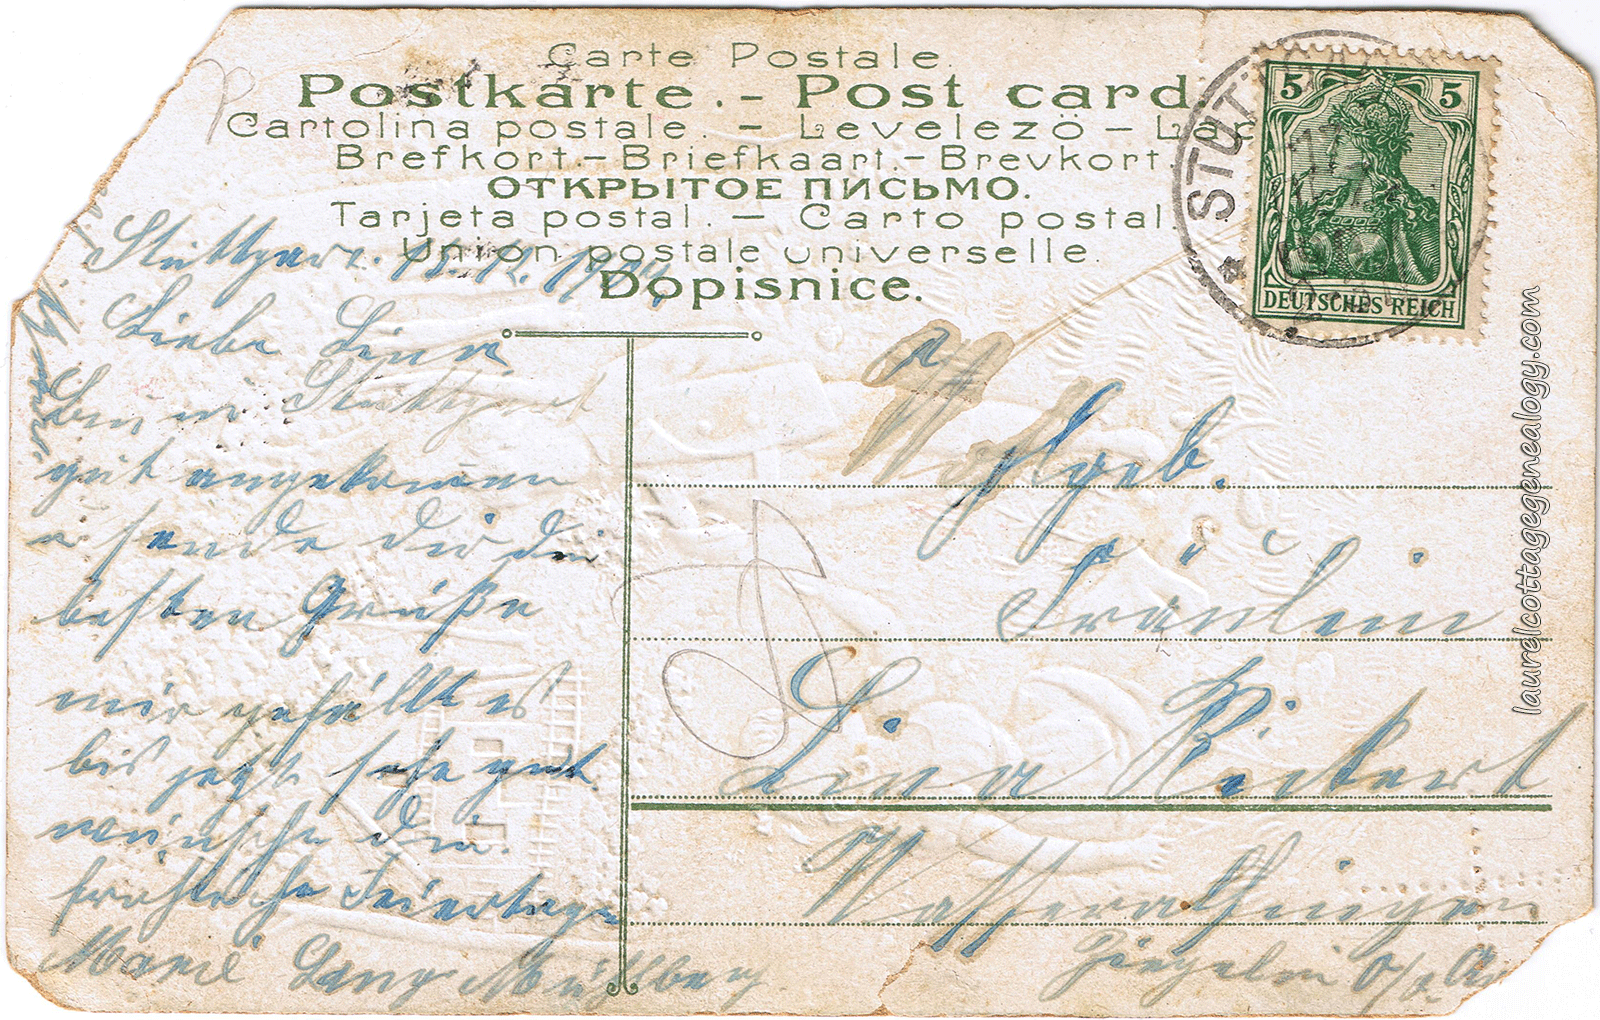 Carte Postale.
Postkarte. - Post card
Cartolina postale. - Levelező - Lap
Brefkort. - Briefkaart. - Brevkort.
ОТКРЫТОЕ ПИСЬМО.
Tarjeta postal. - Carto postal.
Union postale universelle.
Dopisnice.
5 5
DEUTSCHES REICH
STUTTGART
Stuttgart.
Liebe Lina
Bin in Stuttgart
gut angekommen
u. sende dir die
besten Grüße
mir gefällt es
bis jetzt sehr gut.
wünsche dir
fröhliche Feiertage
Marie Lang Mühlberg.
Wohlgeb.
Fräulein
Lina Rickert
Wasseralfingen
Ziegelei O/A
laurelcottagegenealogy.com